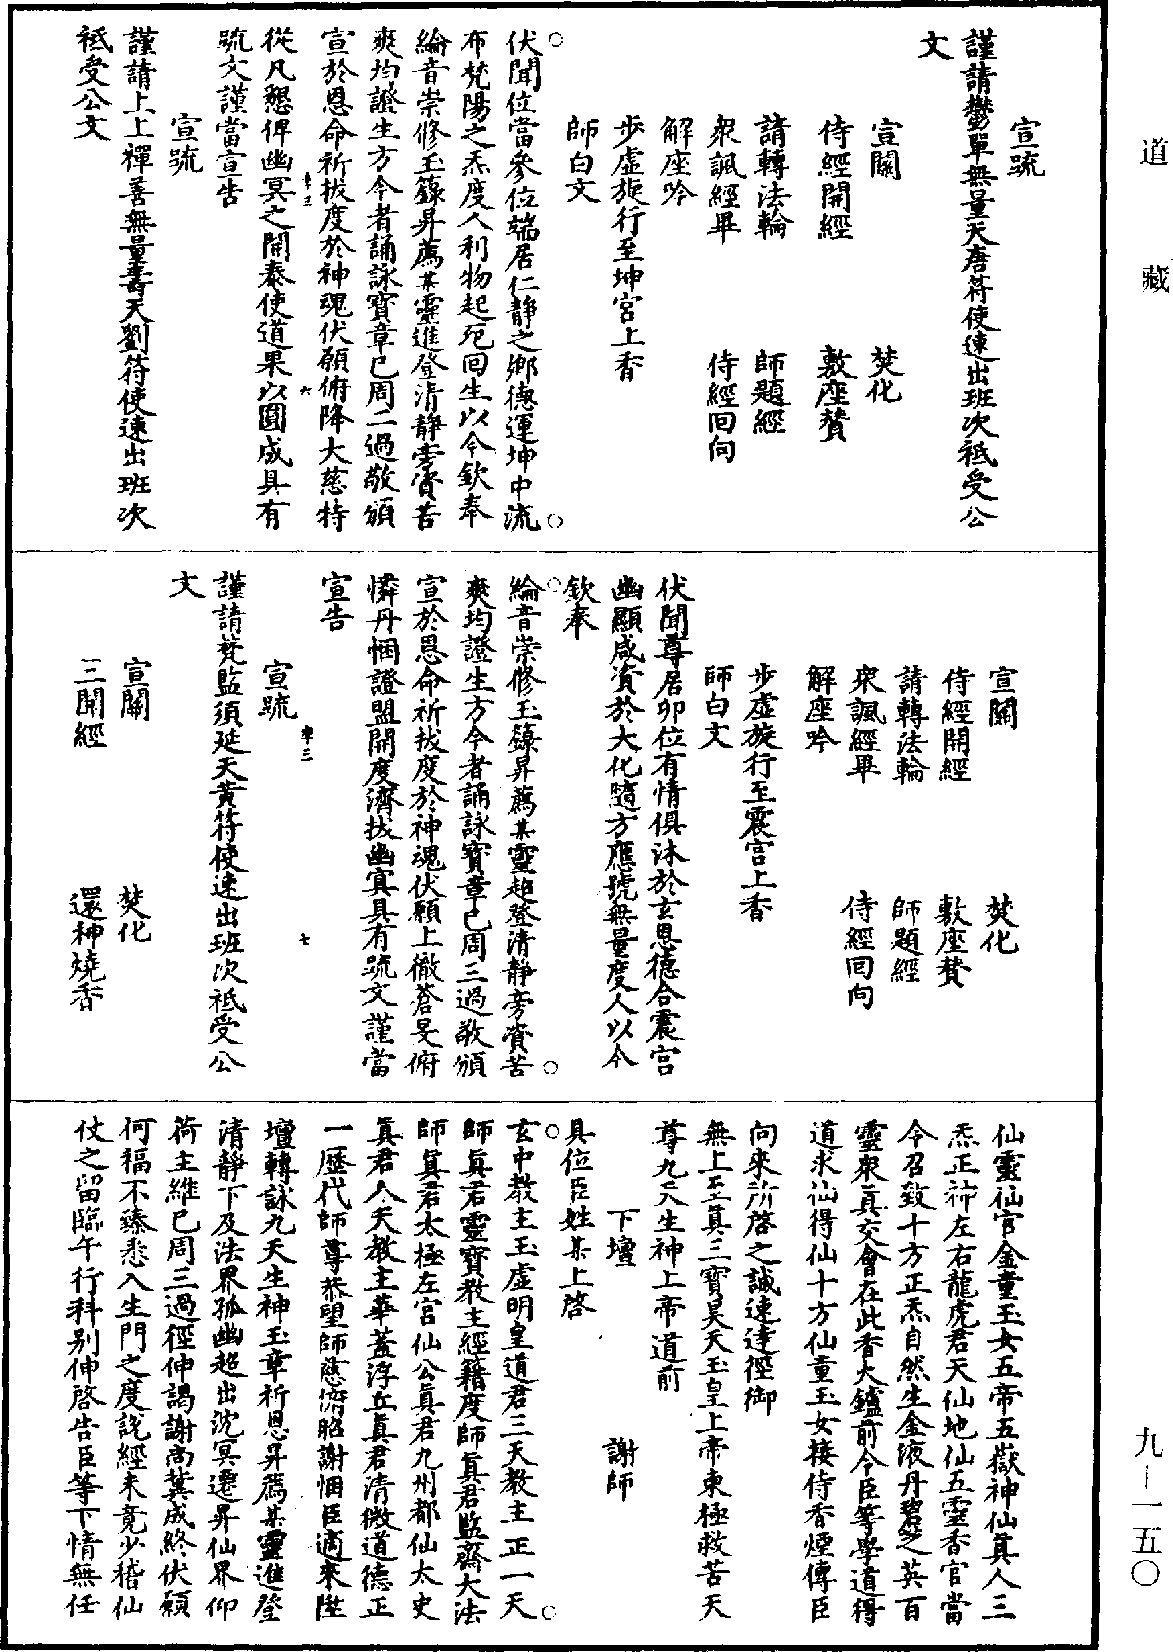 道藏
九—一五〇
宣䟽
謹請鬱單無量天唐符使速出班次祗受公
文
宣關 焚化
侍經開經 敷座贊
請轉法輪 師題經
衆諷經畢 侍經回向
解座吟
步虛旋行至坤宮上香
師白文
伏聞位當參位端居仁静之鄉德運坤中流
布梵陽之炁度人利物起死回生以今欽奉
綸音崇修玉籙昇薦某靈進登清靜旁資苦
爽均證生方今者誦詠寳章已周二過敬頒
宣於恩命祈拔度於神魂伏願俯降大慈特
六
從凡懇俾幽冥之開泰使道果以圓成具有
䟽文謹當宣告
宣䟽
謹請上上禪善無量壽天劉符使速出班次
祗受公文
宣關 焚化
侍經開經 敷座贊
請轉法輪 師題經
衆諷經畢 侍經回向
解座吟
步虛旋行至震宮上香
師白文
伏聞尊居卯位有情俱沐於玄恩德合震宮
幽顯咸資於大化隨方應號無量度人以今
欽奉
綸音崇修玉籙昇薦某靈超登清靜旁資苦
爽均證生方今者誦詠寳章已周三過敬頒
宣於恩命祈拔度於神魂伏願上徹蒼旻俯
憐丹悃證盟開度濟拔幽冥具有䟽文謹當
宣告
七
宣䟽
謹請梵監須延天黄符使速出班次祗受公
文
宣關 焚化
三開經 還神燒香
仙靈仙官金童玉女五帝五嶽神仙真人三
炁正神左右龍虎君天仙地仙五靈香官當
今召致十方正炁自然生金液丹碧芝英百
靈衆真交會在此香火鑪前令臣等學道得
道求仙得仙十方仙童玉女接侍香煙傳臣
向來所啓之誠速達徑御
無上至真三寳昊天玉皇上帝東極救苦天
尊九天生神上帝道前
下壇 謝師
具位臣姓某上啓
玄中教主玉虛明皇道君三天教主正一天
師真君靈寳教主經籍度師真君監齋大法
師真君太極左宮仙公真君九州都仙太史
真君人天教主華蓋浮丘真君清微道德正
一歷代師尊恭望師慈俯昭謝悃臣適來陞
壇轉詠九天生神玉章祈恩昇薦某靈進登
清靜下及法界孤幽超出沈冥遷昇仙界仰
荷主維已周三過徑伸謁謝尚冀成終伏願
何福不臻悉入生門之度説經未竟少稽仙
仗之留臨午行科别伸啓告臣等下情無任